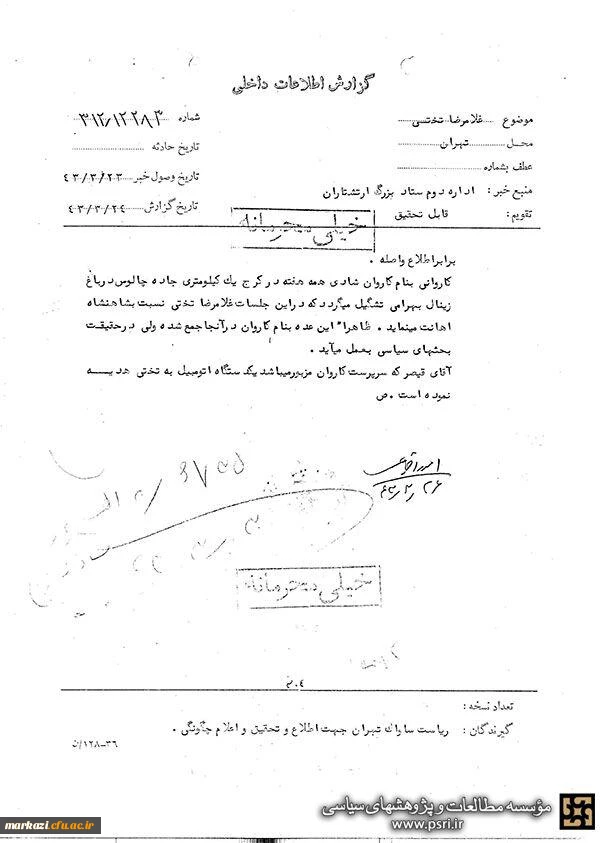 گزارش اطلاعات داخلی
موضوع غلامرضا تختی
شماره ۳۱۲/۱۲۲۸۳
محل تهران
تاریخ حادثه
عطف بشماره
تاریخ وصول خبر ۴۳/۳/۲۳
منبع خبر : اداره دوم ستاد بزرگ ارتشتاران
تاریخ گزارش ۴۳/۳/۲۴
تقویم : قابل تحقیق
خیلی محرمانه
برابر اطلاع واصله .
کاروانی بنام کاروان شادی همه هفته در کرج یك کیلومتری جاده چالوس در باغ
زینال بهرامی تشگیل میگردد که در این جلسات غلامرضا تختی نسبت بشاهنشاه
اهانت مینماید . ظاهراً این عده بنام کاروان در آنجا جمع شده ولی در حقیقت
بحثهای سیاسی بعمل میآید .
آقای قیصر که سرپرست کاروان مزبور میباشد یکدستگاه اتومبیل به تختی هدیه
نموده است . ص
خیلی محرمانه
تعداد نسخه :
گیرندگان : ریاست ساواك تهران جهت اطلاع و تحقیق و اعلام چگونگی .
۱۲۸-۳۶/ن
مؤسسه مطالعات و پژوهشهای سیاسی
www.psri.ir
markazi.cfu.ac.ir